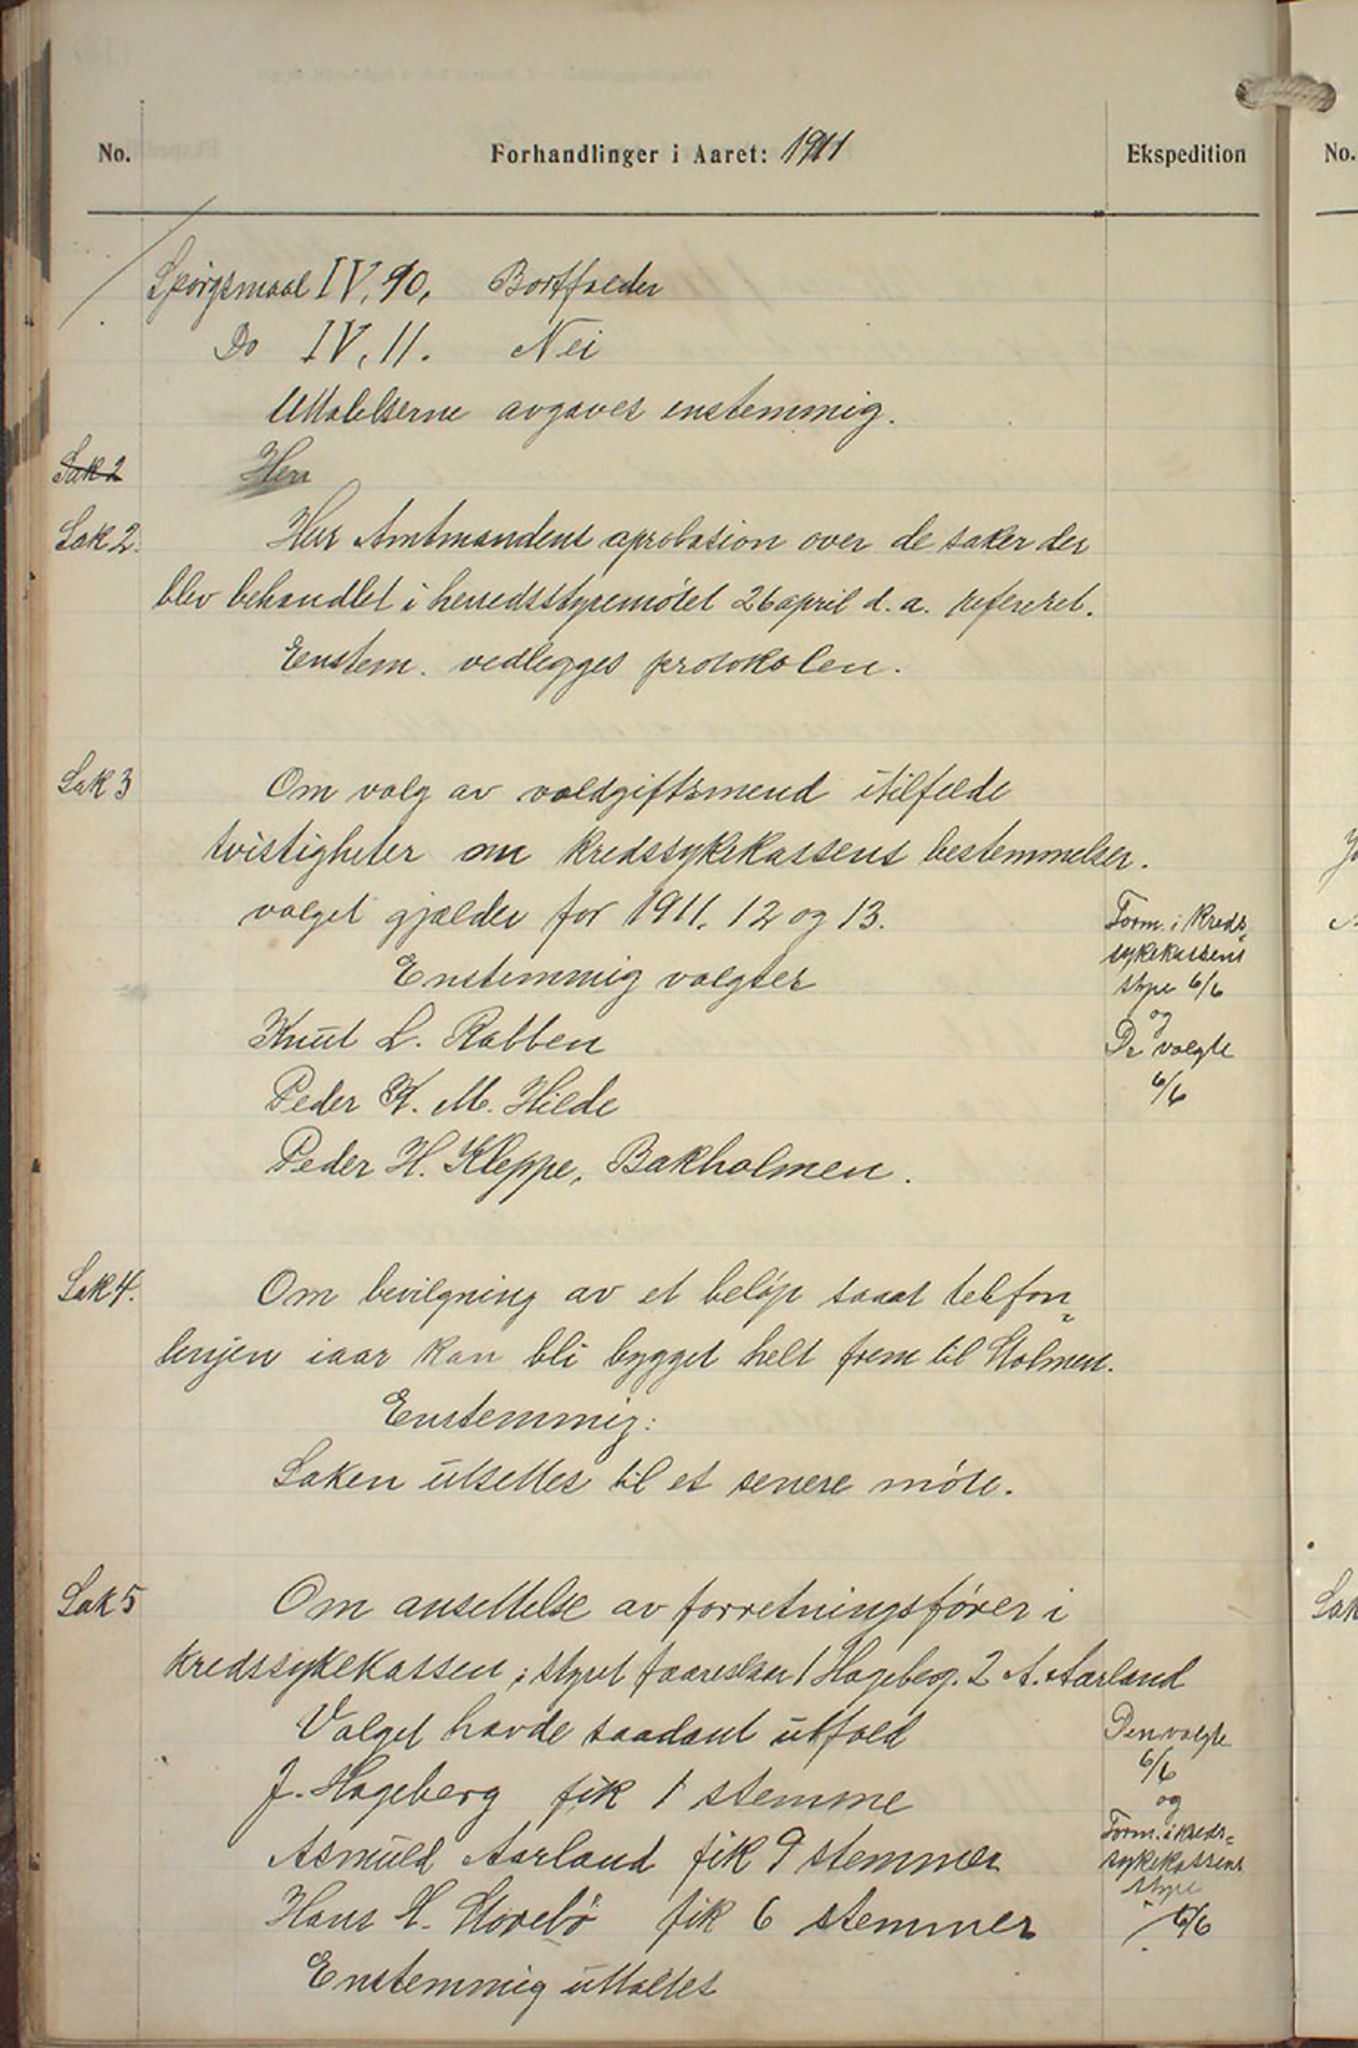 No.
Forhandlinger i Aaret: 1911
Ekspedition
No.
Spørgsmaal IV, 90, Bortfalder
Do IV, 11. Nei
Uttalelserne avgaves enstemmig.
Sak 2
Herr
Sak 2.
Herr Amtmandens aprobasion over de saker der
blev behandlet i herredsstyremøtet 26 april d. a. refereret.
Enstem. vedlegges protokolen.
Sak 3
Om valg av voldgiftsmend itilfelde
tvistigheter om kredssykekassens bestemmelser.
valget gjælder for 1911, 12 og 13.
Enstemmig valgtes
Knut L. Rabben
Peder K. M. Hilde
Peder H. Kleppe, Bakholmen.
Form. i Kreds=
sykekassens
styre 6/6
og
De valgte
6/6
Sak 4.
Om bevilgning av et beløp saaat telefon=
linjen iaar kan bli bygget helt frem til Stolmen.
Enstemmig:
Saken utsettes til et senere møte.
Sak 5
Om ansettelse av forretningsfører i
kredssykekassen; styret foareslaar 1 Hageberg. 2 A. Aarland
Valget havde saadant utfald
J. Hageberg fik 1 stemme
Asmuld Aarland fik 9 stemmer
Hans H. Storebø fik 6 stemmer
Enstemmig uttaltes
Den valgte
6/6
og
Form. i kreds=
sykekassens
styre
6/6
Sak